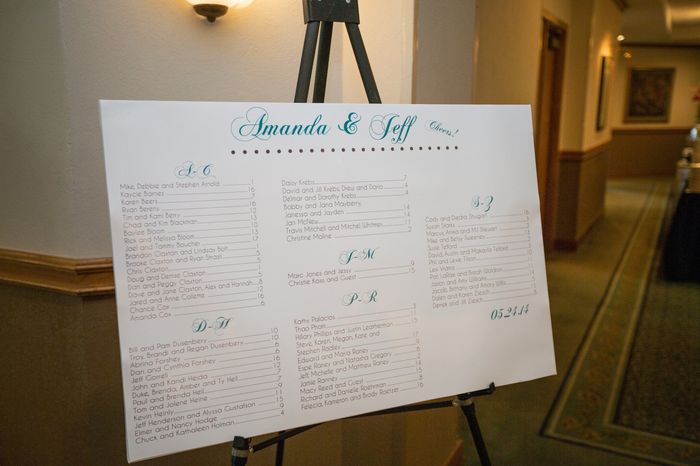 Amanda & Jeff Cheers!
A-C
Mike, Debbie and Stephen Arnold 1
Kaycie Barnes 16
Karen Beers 7
Ryan Berens
Tim and Kami Berry
Chad and Kim Blackman
Baylee Bloom
Rick and Melissa Bloom 13
Joel and Tammy Boucher 17
Brandon Claxton and Lindsay Bolt
Brooke Claxton and Ryan
Chris Claxton
Doug and Denise Claxton
Dan and Peggy Claxton
Dave and Jane Claxton, Alex and Hannah 8
Jared and Anne Collette 12
Chance Cox 16
Amanda Cox
D-H
Bill and Pam Dusenbery 10
Troy, Brandi and Regan Dusenbery 10
Abrina Forshey
Dan and Cynthia Forshey 16
Jeff Gomell
John and Kandi Heidia
Duke, Brenda, Amber and Ty Heil
Paul and Brenda Heil
Tom and Jolene Heine 11
Kevin Heinly 15
Jeff Henderson and Alyssa Gustafson 9
Elmer and Nancy Hodge
Chuck and Kathaleen Holman 4
Daisy Krebs 7
David and Jill Krebs, Drew and Dario 4
Delmar and Dorothy Krebs
Bobby and Jana Mayberry
Janessa and Jayden 14
Jan McNeu 14
Travis Mitchell and Mitchell Whitmer
Christine Moline 2
J-M
Marc Jones and Jessy 9
Christie Koss and Guest 15
P-R
Kathy Palacios 3
Thao Pham
Hillary Phillips and Justin Leatherman
Steve, Karen, Megan, Katie and
Stephen Radley 9
Edward and Maria Raney
Espe Raney and Natasha Gregory 2
Jeff, Michelle and Matthew Raney 14
Jamie Ranney
Macy Reed and Guest
Richard and Danielle Roehrman
Felecia, Kameron and Brady Roetzer 16
S-Z
Cody and Diedra Shugart 16
Susan Starks
Marcus, Anika and MJ Stewart
Mike and Betsy Sweeney
Susie Telford
David, Austin and Makayla Telford
Phil and Lexie Tilson
Lexi Vians
Pat LaRae and Brady Waldron
Jason and Amy Williams
Jacob, Brittany and Amary Willis
Dalen and Karen Ziesch
Derek and Jill Ziesch
05.24.14